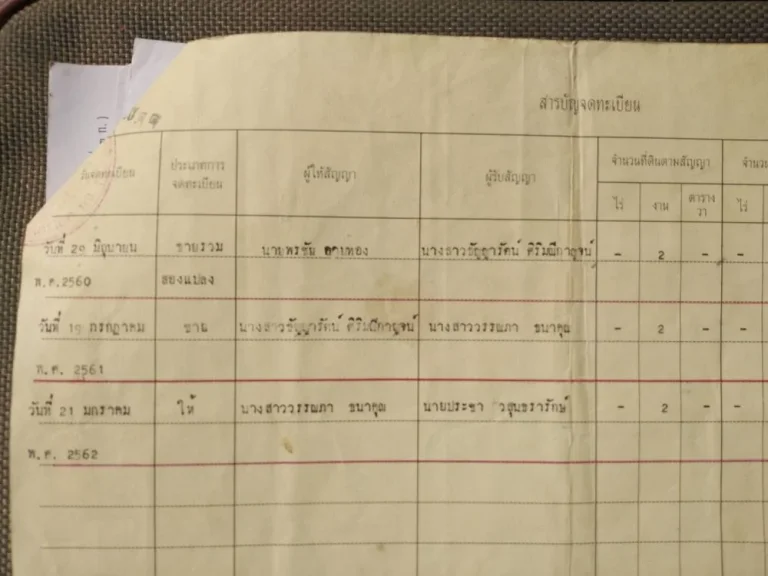 สารบัญจดทะเบียน
วันจดทะเบียน
ประเภทการ
จดทะเบียน
ผู้ให้สัญญา
ผู้รับสัญญา
จำนวนที่ดินตามสัญญา
จำนวน
ไร่ งาน ตาราง ไร่
วา
วันที่ 29 มิถุนายน ขายรวม นายพรชัย นางสาวธัญญารัตน์ ศิริมณีกาญจน์ - 2 - -
พ.ศ.2560 สองแปลง
วันที่ 19 กรกฎาคม ขาย นางสาวธัญญารัตน์ ศิริมณีกาญจน์ นางสาววรรณภา ธนาคุณ - 2 - -
พ.ศ. 2561
วันที่ 21 มกราคม ให้ นางสาววรรณภา ธนาคุณ นายประชา วสุนธรารักษ์ - 2 - -
พ.ศ. 2562